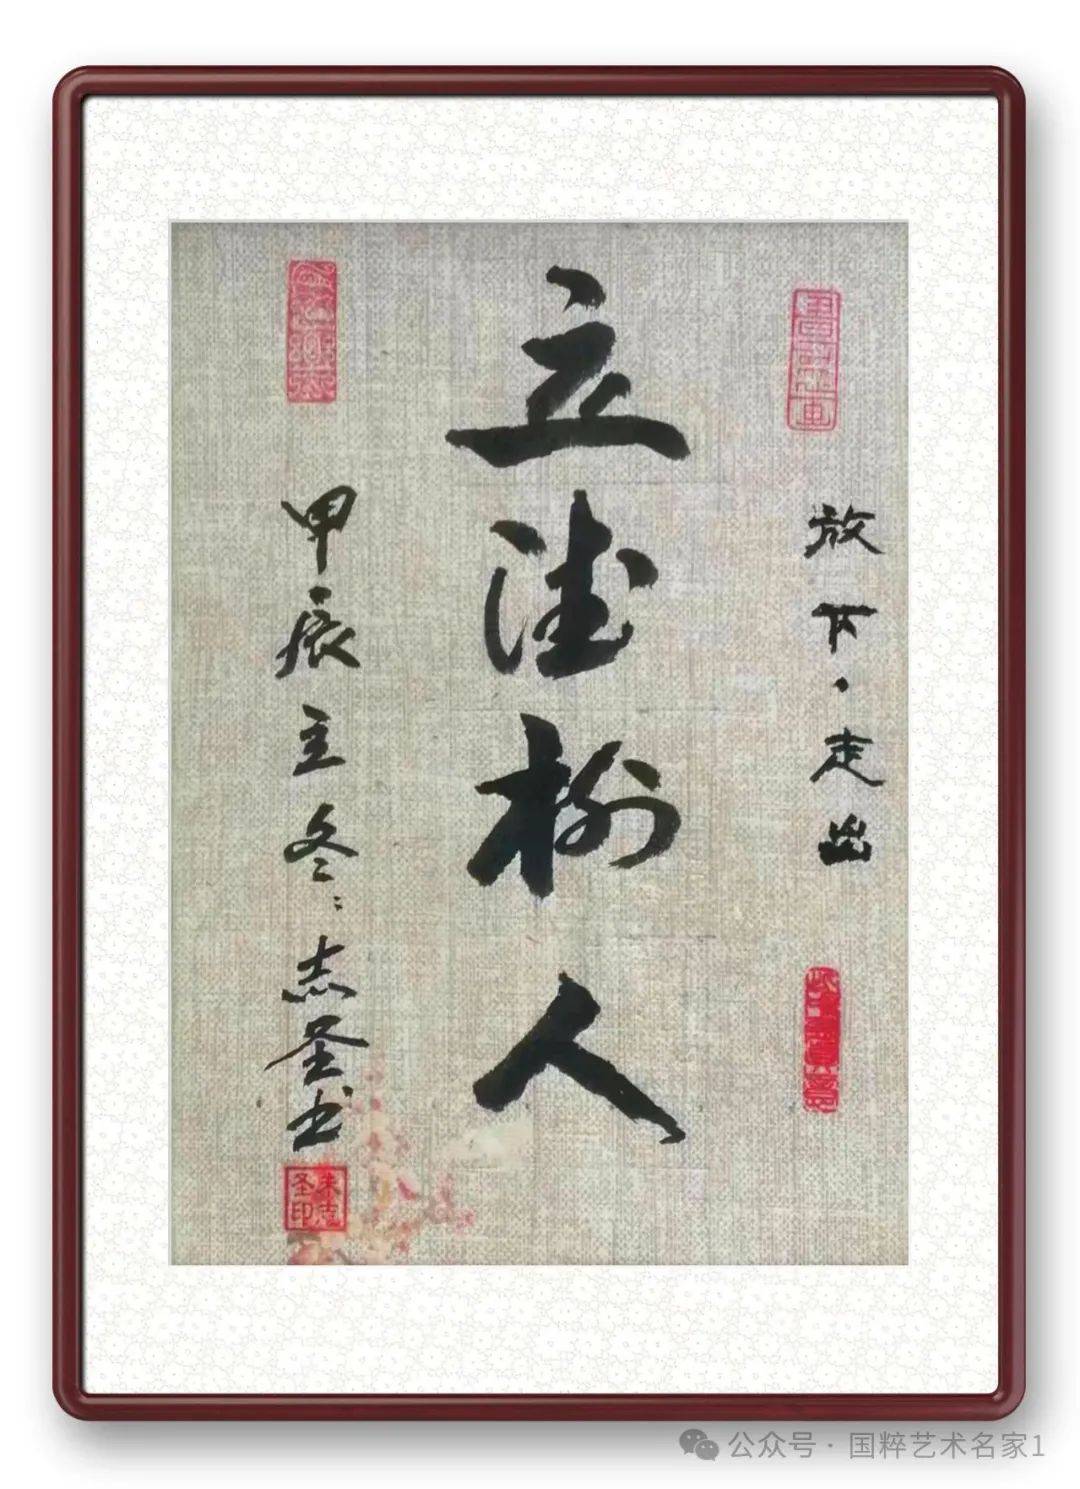 放下·走出
立德树人
甲辰立冬:志圣书
朱志圣印
公众号·国粹艺术名家1